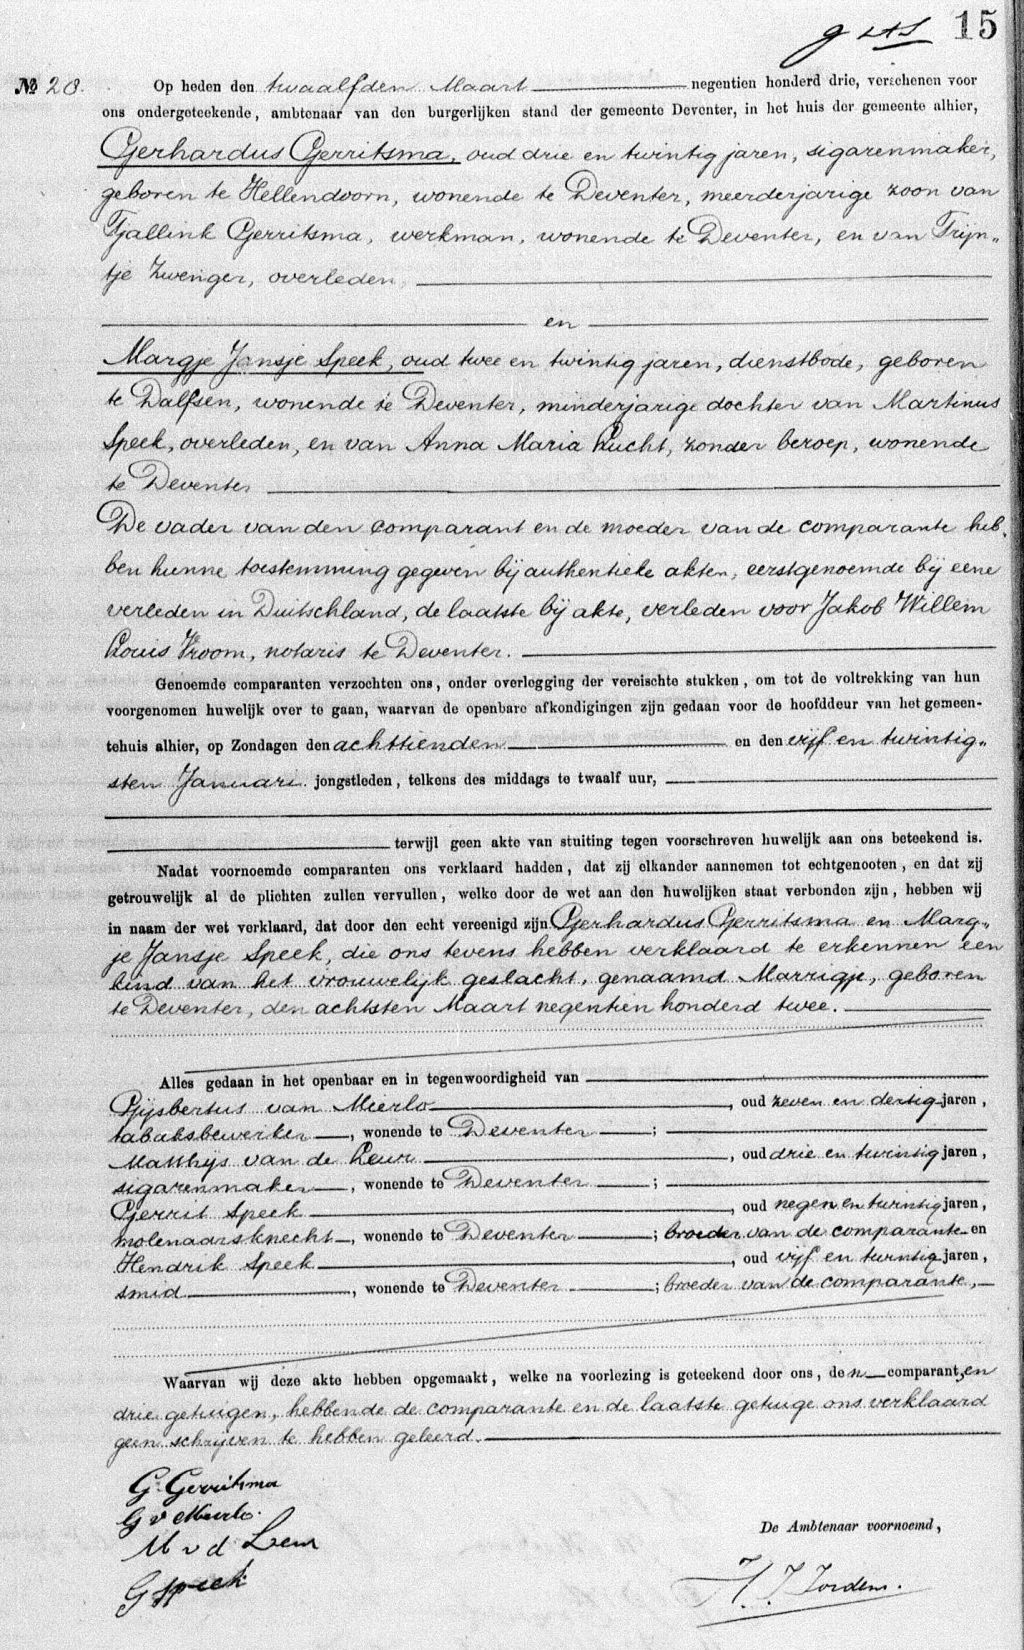 15
№ 28. Op heden den twaalfden Maart negentien honderd drie, verschenen voor
ons ondergeteekende, ambtenaar van den burgerlijken stand der gemeente Deventer, in het huis der gemeente alhier,
Gerhardus Gerritsma, oud drie en twintig jaren, sigarenmaker,
geboren te Hellendoorn, wonende te Deventer, meerderjarige zoon van
Tjallink Gerritsma, werkman, wonende te Deventer, en van Trijn„
tje Zwenger, overleden,
en
Margje Jansje Speek, oud twee en twintig jaren, dienstbode, geboren
te Dalfsen, wonende te Deventer, minderjarige dochter van Martinus
Speek, overleden, en van Anna Maria Lucht, zonder beroep, wonende
te Deventer
De vader van den comparant en de moeder van de comparante heb„
ben hunne toestemming gegeven bij authentieke akten, eerstgenoemde bij eene
verleden in Duitschland, de laatste bij akte, verleden voor Jakob Willem
Louis Vroom, notaris te Deventer.
Genoemde comparanten verzochten ons, onder overlegging der vereischte stukken, om tot de voltrekking van hun
voorgenomen huwelijk over te gaan, waarvan de openbare afkondigingen zijn gedaan voor de hoofddeur van het gemeen-
tehuis alhier, op Zondagen den achttienden en den vijf en twintig„
sten Januari jongstleden, telkens des middags te twaalf uur,
terwijl geen akte van stuiting tegen voorschreven huwelijk aan ons beteekend is.
Nadat voornoemde comparanten ons verklaard hadden, dat zij elkander aannemen tot echtgenooten, en dat zij
getrouwelijk al de plichten zullen vervullen, welke door de wet aan den huwelijken staat verbonden zijn, hebben wij
in naam der wet verklaard, dat door den echt vereenigd zijn Gerhardus Gerritsma en Marg„
je Jansje Speek, die ons tevens hebben verklaard te erkennen een
kind van het vrouwelijk geslacht, genaamd Marrigje, geboren
te Deventer, den achtsten Maart negentien honderd twee.
Alles gedaan in het openbaar en in tegenwoordigheid van
Gijsbertus van Meerlo, oud zeven en dertig jaren,
tabaksbewerker, wonende te Deventer;
Matthijs van de Leur, oud drie en twintig jaren,
sigarenmaker, wonende te Deventer;
Gerrit Speek, oud negen en twintig jaren,
molenaarsknecht, wonende te Deventer; broeder van de comparante en
Hendrik Speek, oud vijf en twintig jaren,
smid, wonende te Deventer; broeder van de comparante,
Waarvan wij deze akte hebben opgemaakt, welke na voorlezing is geteekend door ons, den comparant, en
drie getuigen, hebbende de comparante en de laatste getuige ons verklaard
geen schrijven te hebben geleerd.
G. Gerritsma
G v Meerlo.
M v d Leur
G Speek
De Ambtenaar voornoemd,